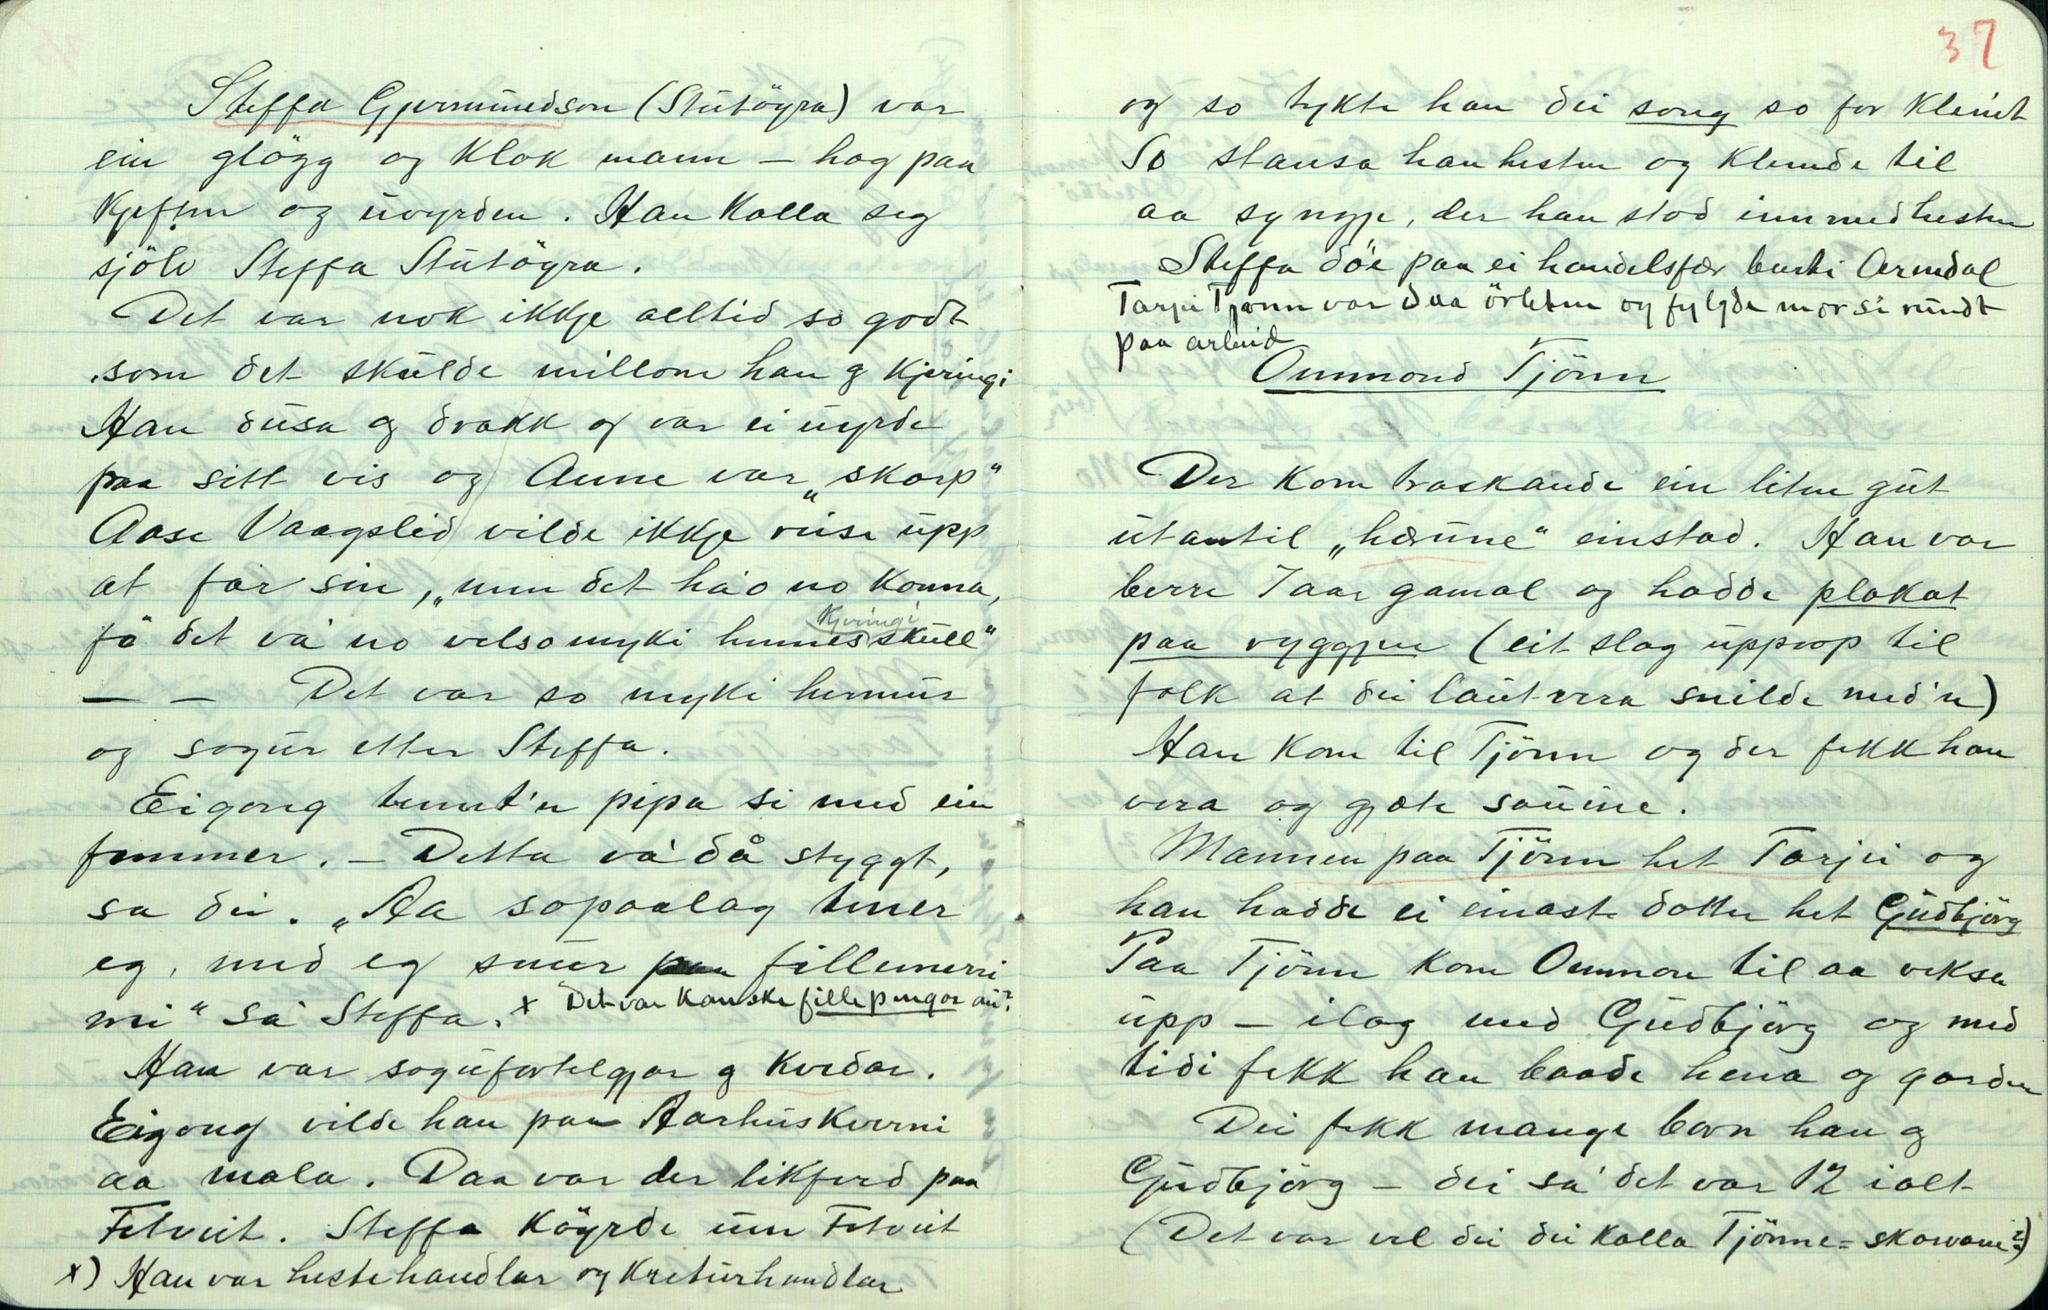 Steffa Gjermundson (Stutöyra) var
ein glögg og klok mann – hag paa
kjeften og uvyrden. Han kalla seg
sjölv Steffa Stutöyra.
Det var nok ikkje alltid so godt
som det skulde millom han og kjeringi
Han dusa og drakk og var ei uyrde
paa sitt vis og Anne var „skarp“
Aase Vaagslid vilde ikkje ruise upp
at far sin, „men det ha'o no konna,
fö det va' no velso myki hennes skull“
kjeringi
– – Det var so myki hermur
og sogur etter Steffa.
Eigong tennt'n pipa si med ein
femmer. – Detta va' då styggt,
sa dei. „Aa sopaalag tener
eg, med eg snur fillemerri
mi“ sa' Steffa. x Det var kanske fillepengar au?
Han var soguforteljar og kvedar.
Eigong vilde han paa Aarhuskverni
aa mala. Daa var der likferd paa
Fetveit. Steffa köyrde um Fetveit
x) Han var hestehandlar og kreturhandlar
37
og so tykte han dei song so for kleint
So stansa han hesten og klemde til
aa syngje, der han stod innmed hesten
Steffa döe paa ei handelsfær burti Arendal
Tarjei Tjönn var daa örliten og fylgde mor si rundt
paa arbeid
Oummond Tjönn
Der kom traskande ein liten gut
utantil „hæune“ einstad. Han var
berre 7 aar gamal og hadde plakat
paa ryggjen (eit slag upprop til
folk at dei laut vera snilde med'n)
Han kom til Tjönn og der fekk han
vera og gjæte sauine.
Mannen paa Tjönn het Tarjei og
han hadde ei einaste dotter het Gudbjörg
Paa Tjönn kom Oummon til aa veksa
upp – ilag med Gudbjörg og med
tidi fekk han baade hena og garden
Dei fekk mange born han og
Gudbjörg – dei sa' det var 12 ialt
(Det var vel dei dei kalla Tjönne=skarvane?)